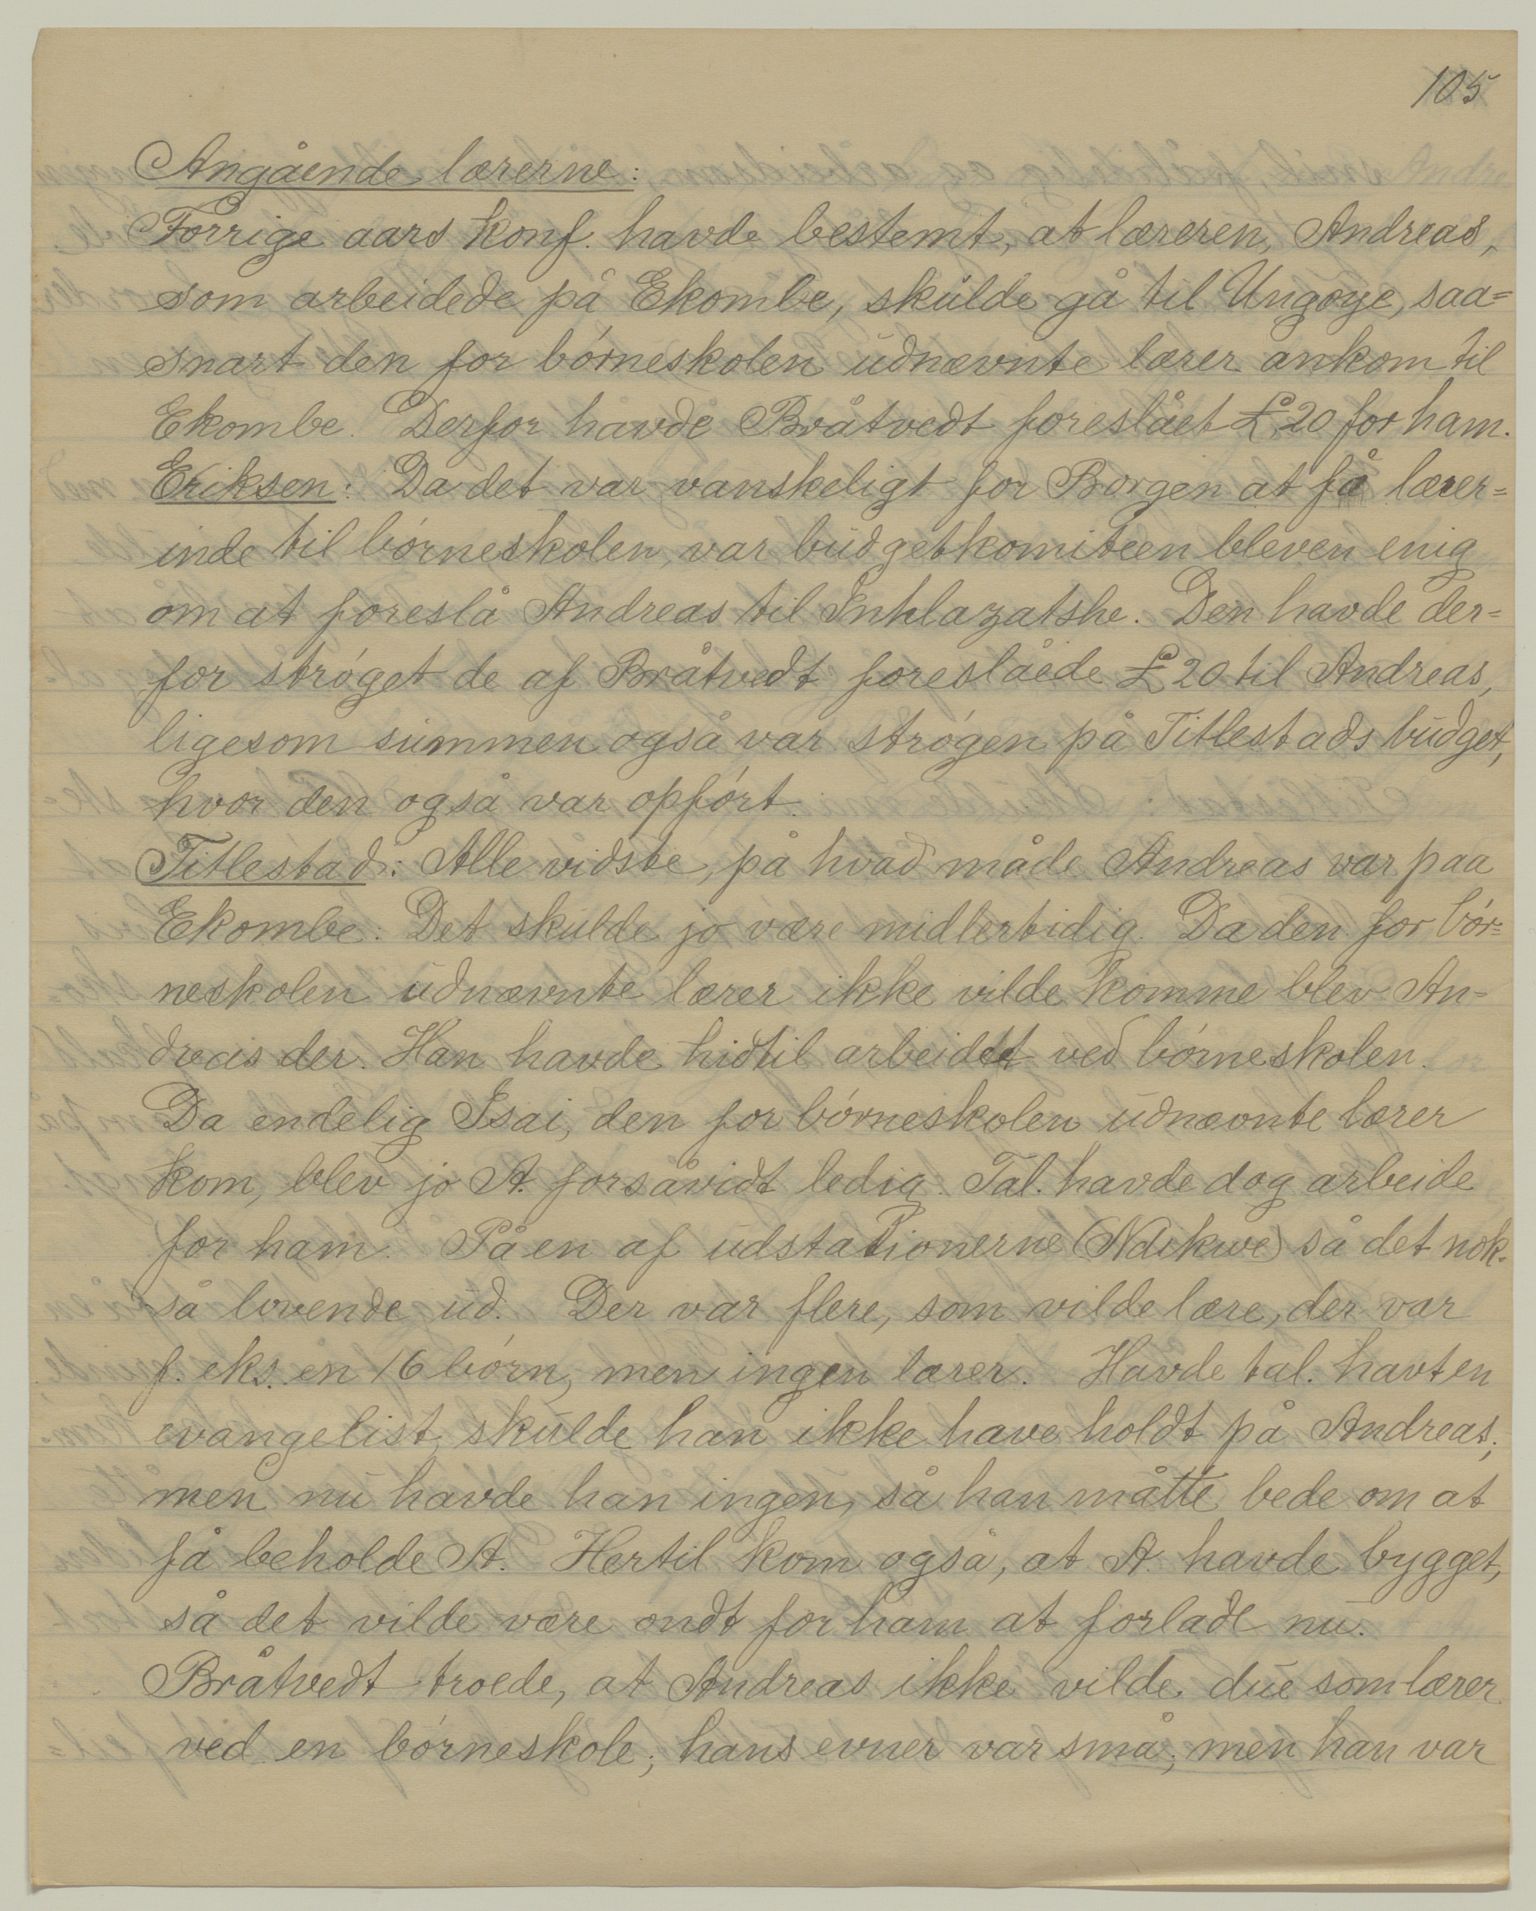 105
Angående lærerne:
Forrige aars konf. havde bestemt, at læreren, Andreas,
som arbeidede på Ekombe, skulde gå til Ungoye, saa=
snart den for börneskolen udnævnte lærer ankom til
Ekombe. Derfor havde Bråtvedt foreslået £20 for ham.
Eriksen: Da det var vanskeligt for Borgen at få lærer=
inde til börneskolen, var budgetkomiteen bleven enig
om at foreslå Andreas til Inhlazatshe. Den havde der=
for ströget de af Bråtvedt foreslåede £20 til Andreas,
ligesom summen også var strögen på Titlestads budget,
hvor den også var opfört.
Titlestad: Alle vidste, på hvad måde Andreas var paa
Ekombe: Det skulde jo være midlertidig. Da den for bör=
neskolen udnævnte lærer ikke vilde komme blev An=
dreas der. Han havde hidtil arbeidet ved börneskolen.
Da endelig Isai, den for börneskolen udnævnte lærer
kom, blev jo A. forsåvidt ledig. Tal. havde dog arbeide
for ham. På en af udstationerne (Ndikwe) så det nok=
så lovende ud. Der var flere, som vilde lære, der var
f. eks. en 16 börn, men ingen lærer. Havde tal. havt en
evangelist, skulde han ikke have holdt på Andreas;
men nu havde han ingen, så han måtte bede om at
få beholde A. Hertil kom også, at A. havde bygget,
så det vilde være ondt for ham at forlade nu.
Bråtvedt troede, at Andreas ikke vilde due som lærer
ved en börneskole; hans evner var små; men han var